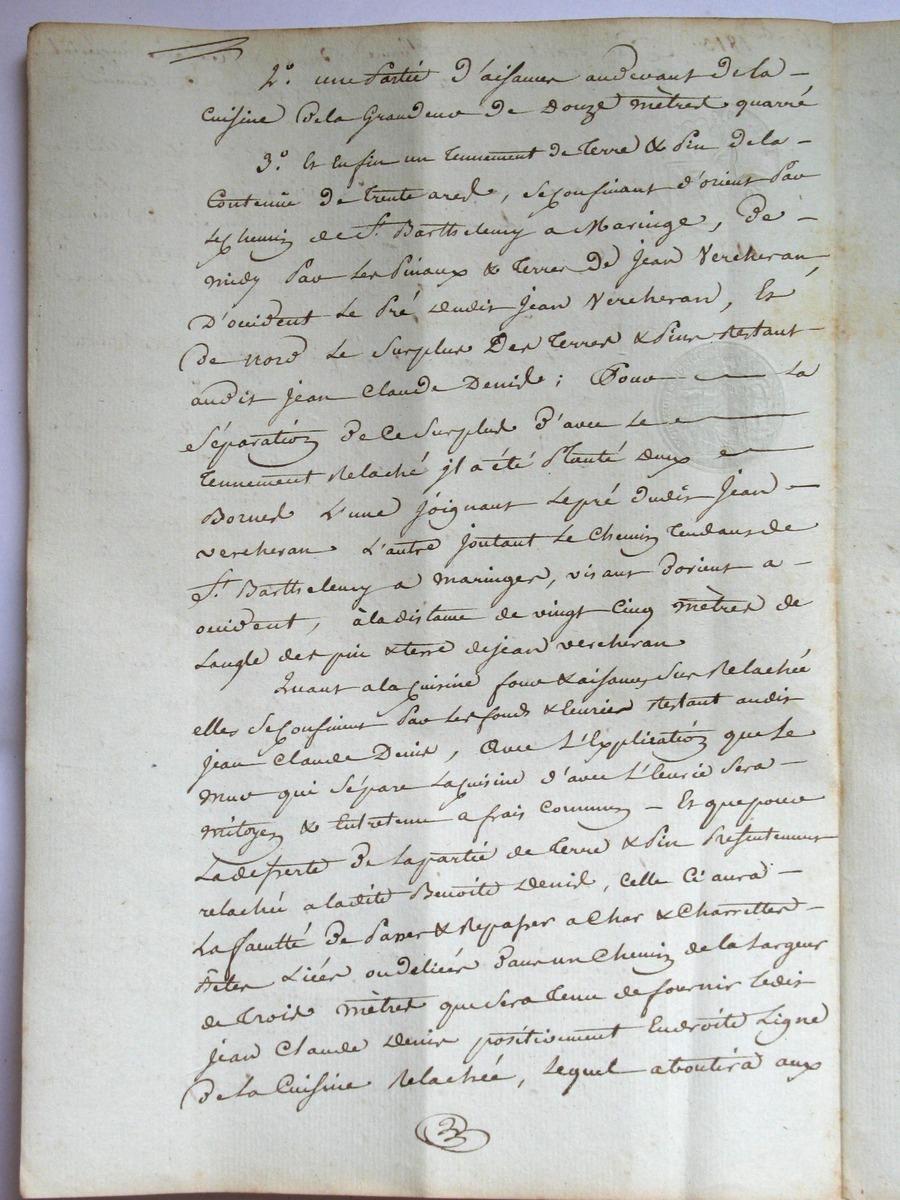 2º. une Partie d'aisance audevant de la –
Cuisine de la Grandeur de Douze mètres quarré
3º. Et Enfin un Tennement de Terre & Pin de la –
Contenue de trente ares, se Confinant d'orient Par
Le Chemin de St. Barthelemy a Maringe, De –
midy Par Les Pinaux & Terres De Jean Vercheran
D'occident Le Pré dudit Jean Vercheran, Et
De nord Le Surplus Des Terres & Pins Restant
audit Jean Claude Denis ; Pour — La
Séparation De Ce Surplus D'avec Le —
Tennement Relaché jl a été Planté deux —
Bornes L'une joignant Le pré dudit Jean –
vercheran L'autre Joutant Le Chemin Tendant de
St. Barthelemy a maringes, visant D'orient a –
occident, à la distance de vingt Cinq mètres de
Langle des pin & terre de jean vercheran
Quant a la Cuisine four & aisances Sus Relachée
elles se Confinent Par Les fonds & Ecuries Restant audit
Jean Claude Denis, avec L'Explication que Le
Mur qui Sépare La Cuisine d'avec L'Ecurie Sera –
mitoyen & Entretenu a frais Communs – Et que pour
La desserte De La partie de Terre & Pin Présentement
relachée a ladite Benoite Denis, Celle Ci aura –
La faculté De Passer & Repasser a Char & Charrettes –
Betes Liées ou déliées Dans un Chemin de la Largeur
de Trois mètres que Sera Tenu de fournir Ledit
Jean Claude Denis positivement En droite Ligne
De La Cuisine Relachée, Lequel aboutira aux